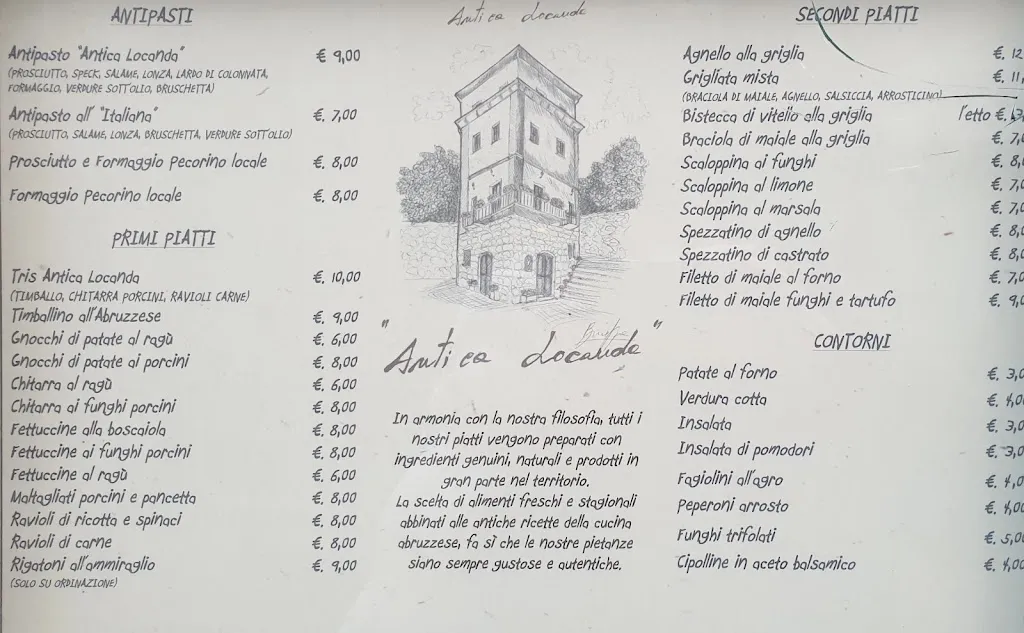 ANTIPASTI
Antipasto "Antica Locanda" € 9,00
(PROSCIUTTO, SPECK, SALAME, LONZA, LARDO DI COLONNATA,
FORMAGGIO, VERDURE SOTT'OLIO, BRUSCHETTA)
Antipasto all' "Italiana" €. 7,00
(PROSCIUTTO, SALAME, LONZA, BRUSCHETTA, VERDURE SOTT'OLIO)
Prosciutto e Formaggio Pecorino locale €. 8,00
Formaggio Pecorino locale €. 8,00
PRIMI PIATTI
Tris Antica Locanda €. 10,00
(TIMBALLO, CHITARRA PORCINI, RAVIOLI CARNE)
Timballino all'Abruzzese €. 9,00
Gnocchi di patate al ragù €. 6,00
Gnocchi di patate ai porcini €. 8,00
Chitarra al ragù €. 6,00
Chitarra ai funghi porcini €. 8,00
Fettuccine alla boscaiola €. 8,00
Fettuccine ai funghi porcini €. 8,00
Fettuccine al ragù €. 6,00
Maltagliati porcini e pancetta €. 8,00
Ravioli di ricotta e spinaci €. 8,00
Ravioli di carne €. 8,00
Rigatoni all'ammiraglio €. 9,00
(SOLO SU ORDINAZIONE)
Antica Locanda
"Antica Locanda"
In armonia con la nostra filosofia, tutti i
nostri piatti vengono preparati con
ingredienti genuini, naturali e prodotti in
gran parte nel territorio.
La scelta di alimenti freschi e stagionali
abbinati alle antiche ricette della cucina
abruzzese, fa sì che le nostre pietanze
siano sempre gustose e autentiche.
SECONDI PIATTI
Agnello alla griglia €. 12
Grigliata mista €. 11,
(BRACIOLA DI MAIALE, AGNELLO, SALSICCIA, ARROSTICINO)
Bistecca di vitello alla griglia l'etto €.
Braciola di maiale alla griglia €. 7,
Scaloppina ai funghi €. 8,
Scaloppina al limone €. 7,
Scaloppina al marsala €. 7,
Spezzatino di agnello €. 8,
Spezzatino di castrato €. 8,
Filetto di maiale al forno €. 7,
Filetto di maiale funghi e tartufo €. 9,
CONTORNI
Patate al forno €. 3,0
Verdura cotta €. 4,00
Insalata €. 3,0
Insalata di pomodori €. 3,0
Fagiolini all'agro €. 4,0
Peperoni arrosto €. 4,00
Funghi trifolati €. 5,00
Cipolline in aceto balsamico €. 4,00